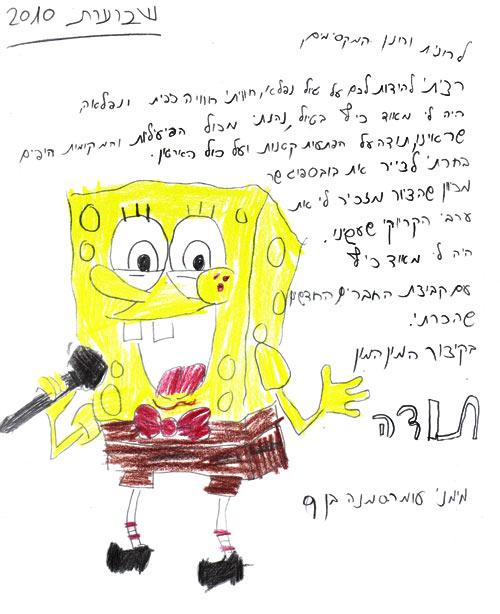 שבועות 2010
לרונית ורונן המקסימים,
רציתי להודות לכם על טיול נפלא, חוויתי חוויה כפית ונפלאה,
היה לי מאוד כיף בטיול, נהנתי מכול הפיעילות והמקומית היפים
שראינו, תודה על הפתעות קטנות ועל כול
בחרתי לצייר את בובספיג שר
מכוון שהציור מזכיר לי את
ערבי הקריוקי שעשינו.
היה לי מאוד כיף
עם קבוצת החברים החדשים
שהכרתי.
בקיצור המון המון
תודה
מימני עומר סמנה בן 9